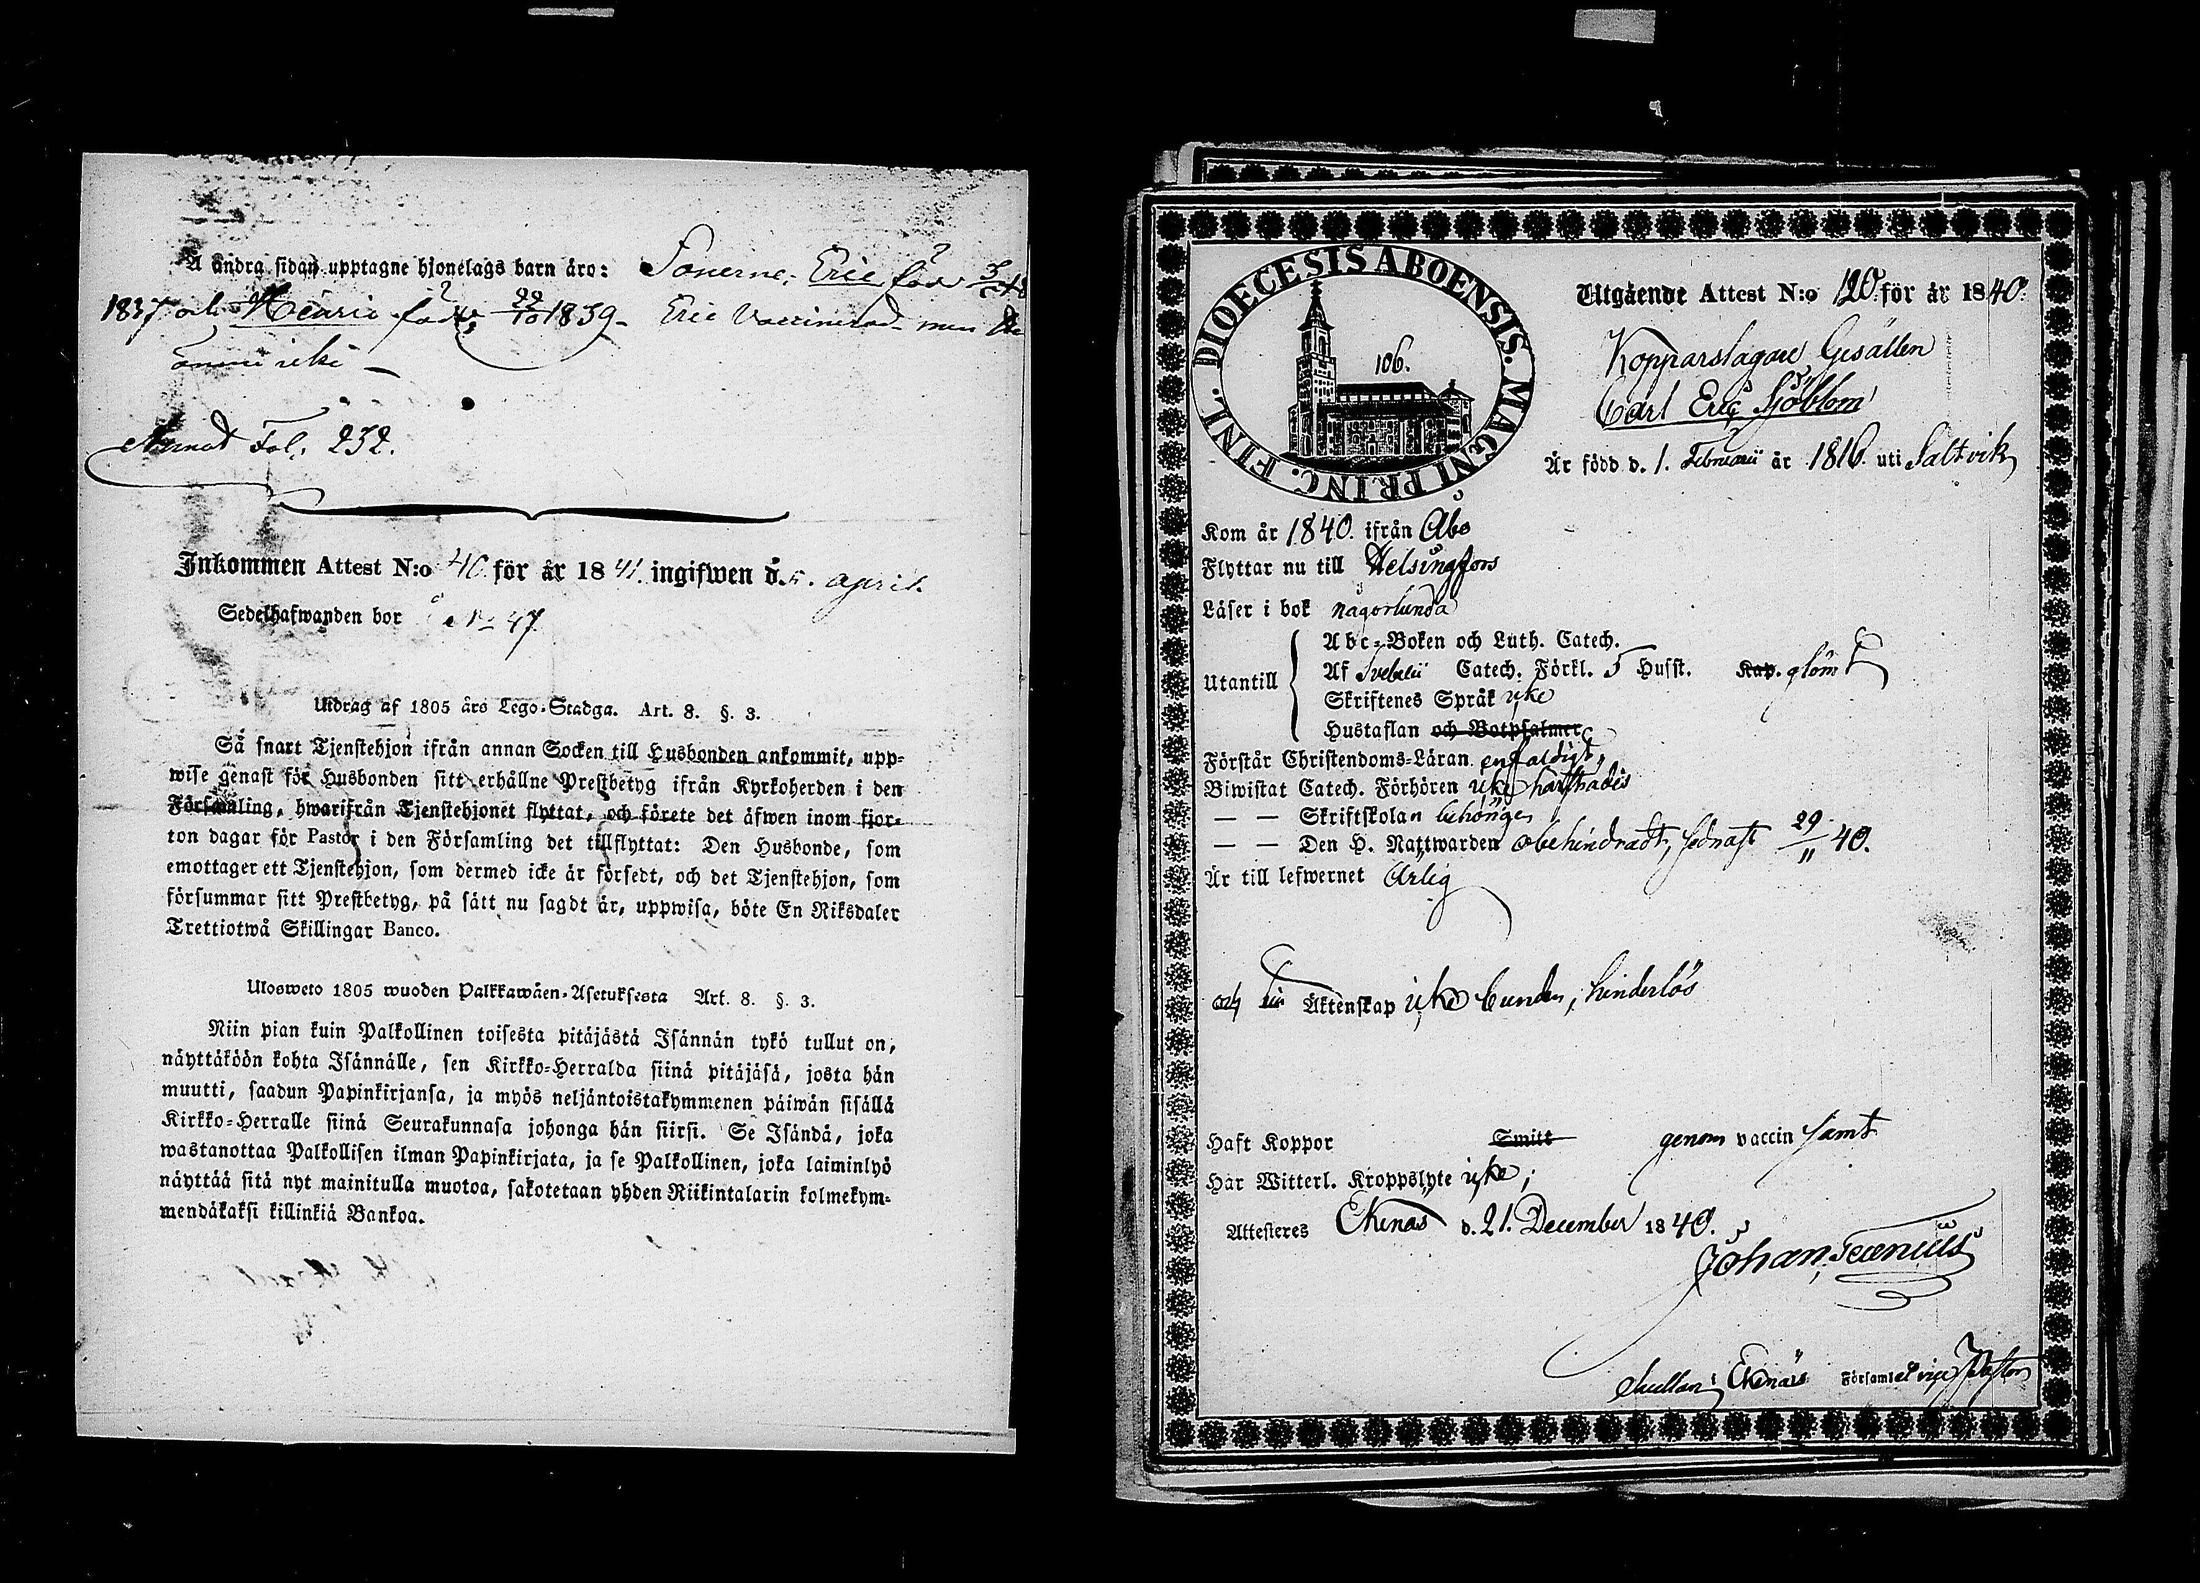 Å andra sidan upptagne hjonelags barn äro: Sönerne, Eric född
1837 och Henric född 22/10 1839 - Eric Vaccinerad men
ännu icke -
Annot Fol. 232.
Inkommen Attest N:o 40. för år 1841. ingifwen d. 5. april.
Sedelhafwanden bor å No 47
Utdrag af 1805 års Lego-Stadga. Art. 8. §. 3.
Så snart Tjenstehjon ifrån annan Socken till Husbonden ankommit, upp-
wise genast för Husbonden sitt erhållne Prestbetyg ifrån Kyrkoherden i den
Församling, hwarifrån Tjenstehjonet flyttat, och förete det äfwen inom fjor-
ton dagar för Pastor i den Församling det tillflyttat: Den Husbonde, som
emottager ett Tjenstehjon, som dermed icke är försedt, och det Tjenstehjon, som
försummar sitt Prestbetyg, på sätt nu sagdt är, uppwisa, böte En Riksdaler
Trettiotwå Skillingar Banco.
Ulosweto 1805 wuoden Palkkawäen-Asetuksesta Art. 8. §. 3.
Niin pian kuin Palkollinen toisesta pitäjästä Isännän tykö tullut on,
näyttäköön kohta Isännälle, sen Kirkko-Herralda siinä pitäjäsä, josta hän
muutti, saadun Papinkirjansa, ja myös neljäntoistakymmenen päiwän sisällä
Kirkko-Herralle siinä Seurakunnasa johonga hän siirsi. Se Isändä, joka
wastanottaa Palkollisen ilman Papinkirjata, ja se Palkollinen, joka laiminlyö
näyttää sitä nyt mainitulla muotoa, sakotetaan yhden Riikintalarin kolmekym-
mendäkaksi killinkiä Bankoa.
DIOECESIS ABOENSIS. MAGNI PRINC. FINL.
106.
Utgående Attest N:o 120 för år 1840.
Kopparslagare Gesällen
Carl Eric Sjöblom
Är född d. 1. Februarii år 1816. uti Saltvik
Kom år 1840. ifrån Åbo
Flyttar nu till Helsingfors
Läser i bok någorlunda
Utantill
Abc-Boken och Luth. Catech.
Af Svebelii Catech. Förkl. 5 Husst. Kap. glömt
Skriftenes Språk icke
Hustaflan och Botpsalmer
Förstår Christendoms-Läran enfaldigt,
Biwistat Catech. Förhören icke härstädes
— — Skriftskolan behörigen
— — Den H. Nattwarden obehindradt, sednast 29/11 40.
Är till lefwernet Ärlig
och till Äktenskap icke bunden, hinderlös
Haft Koppor Smitt genom vaccin samt
Har Witterl. Kroppslyte icke;
Attesteres Ekenäs d. 21. December 1840.
Johan
i Ekenäs Församl. vice Pastor